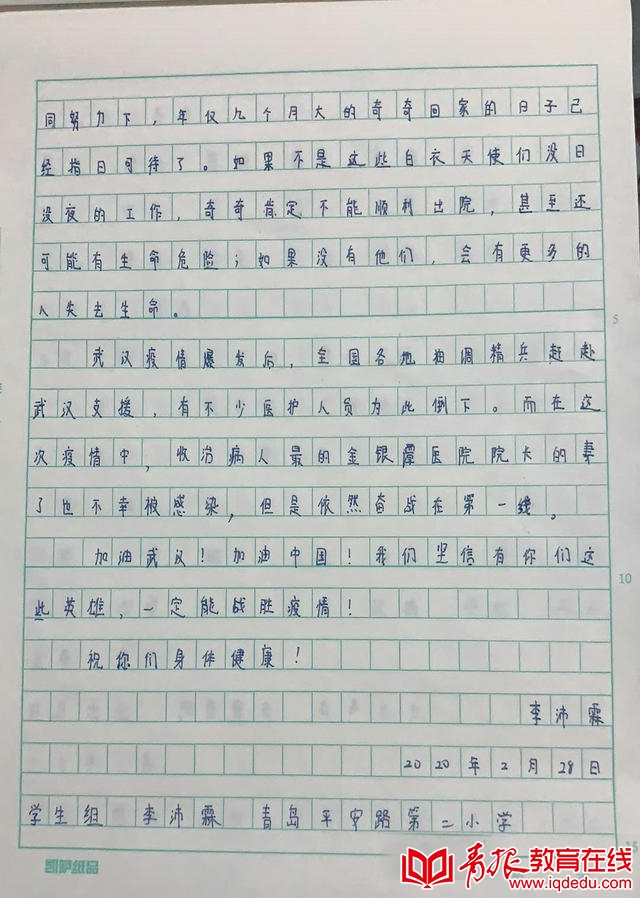 同努力下，年仅九个月大的奇奇回家的日子已
经指日可待了。如果不是这些白衣天使们没日
没夜的工作，奇奇肯定不能顺利出院，甚至还
可能有生命危险；如果没有他们，会有更多的
人失去生命。
武汉疫情爆发后，全国各地抽调精兵赶赴
武汉支援，有不少医护人员为此倒下。而在这
次疫情中，收治病人最的金银潭医院院长的妻
了也不幸被感染，但是依然奋战在第一线。
加油武汉！加油中国！我们坚信有你们这
些英雄，一定能战胜疫情！
祝你们身体健康！
李沛霖
2020年2月28日
学生组 李沛霖 青岛平安路第二小学
5
10
15
凯萨纸品
青报教育在线
www.iqdedu.com